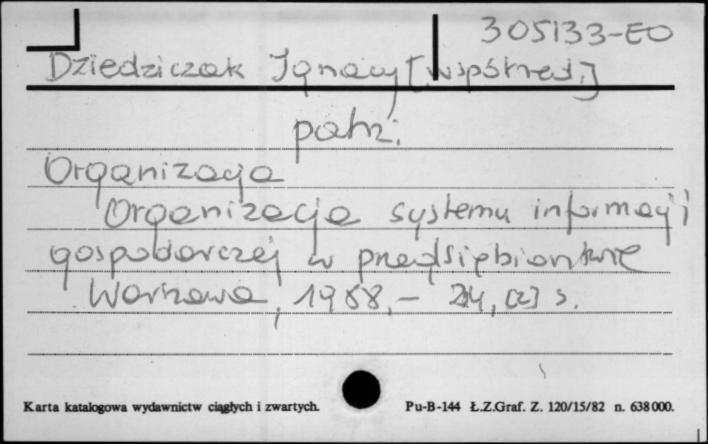 305133-EO
Dziedziczak Ignacy [współred.]
patrz:
Organizacja
Organizacja systemu informacji
gospodarczej w przedsiębiorstwie
Warszawa, 1988, - 214, [2] s.
Karta katalogowa wydawnictw ciągłych i zwartych. Pu-B-144 Ł.Z.Graf. Z. 120/15/82 n. 638000.